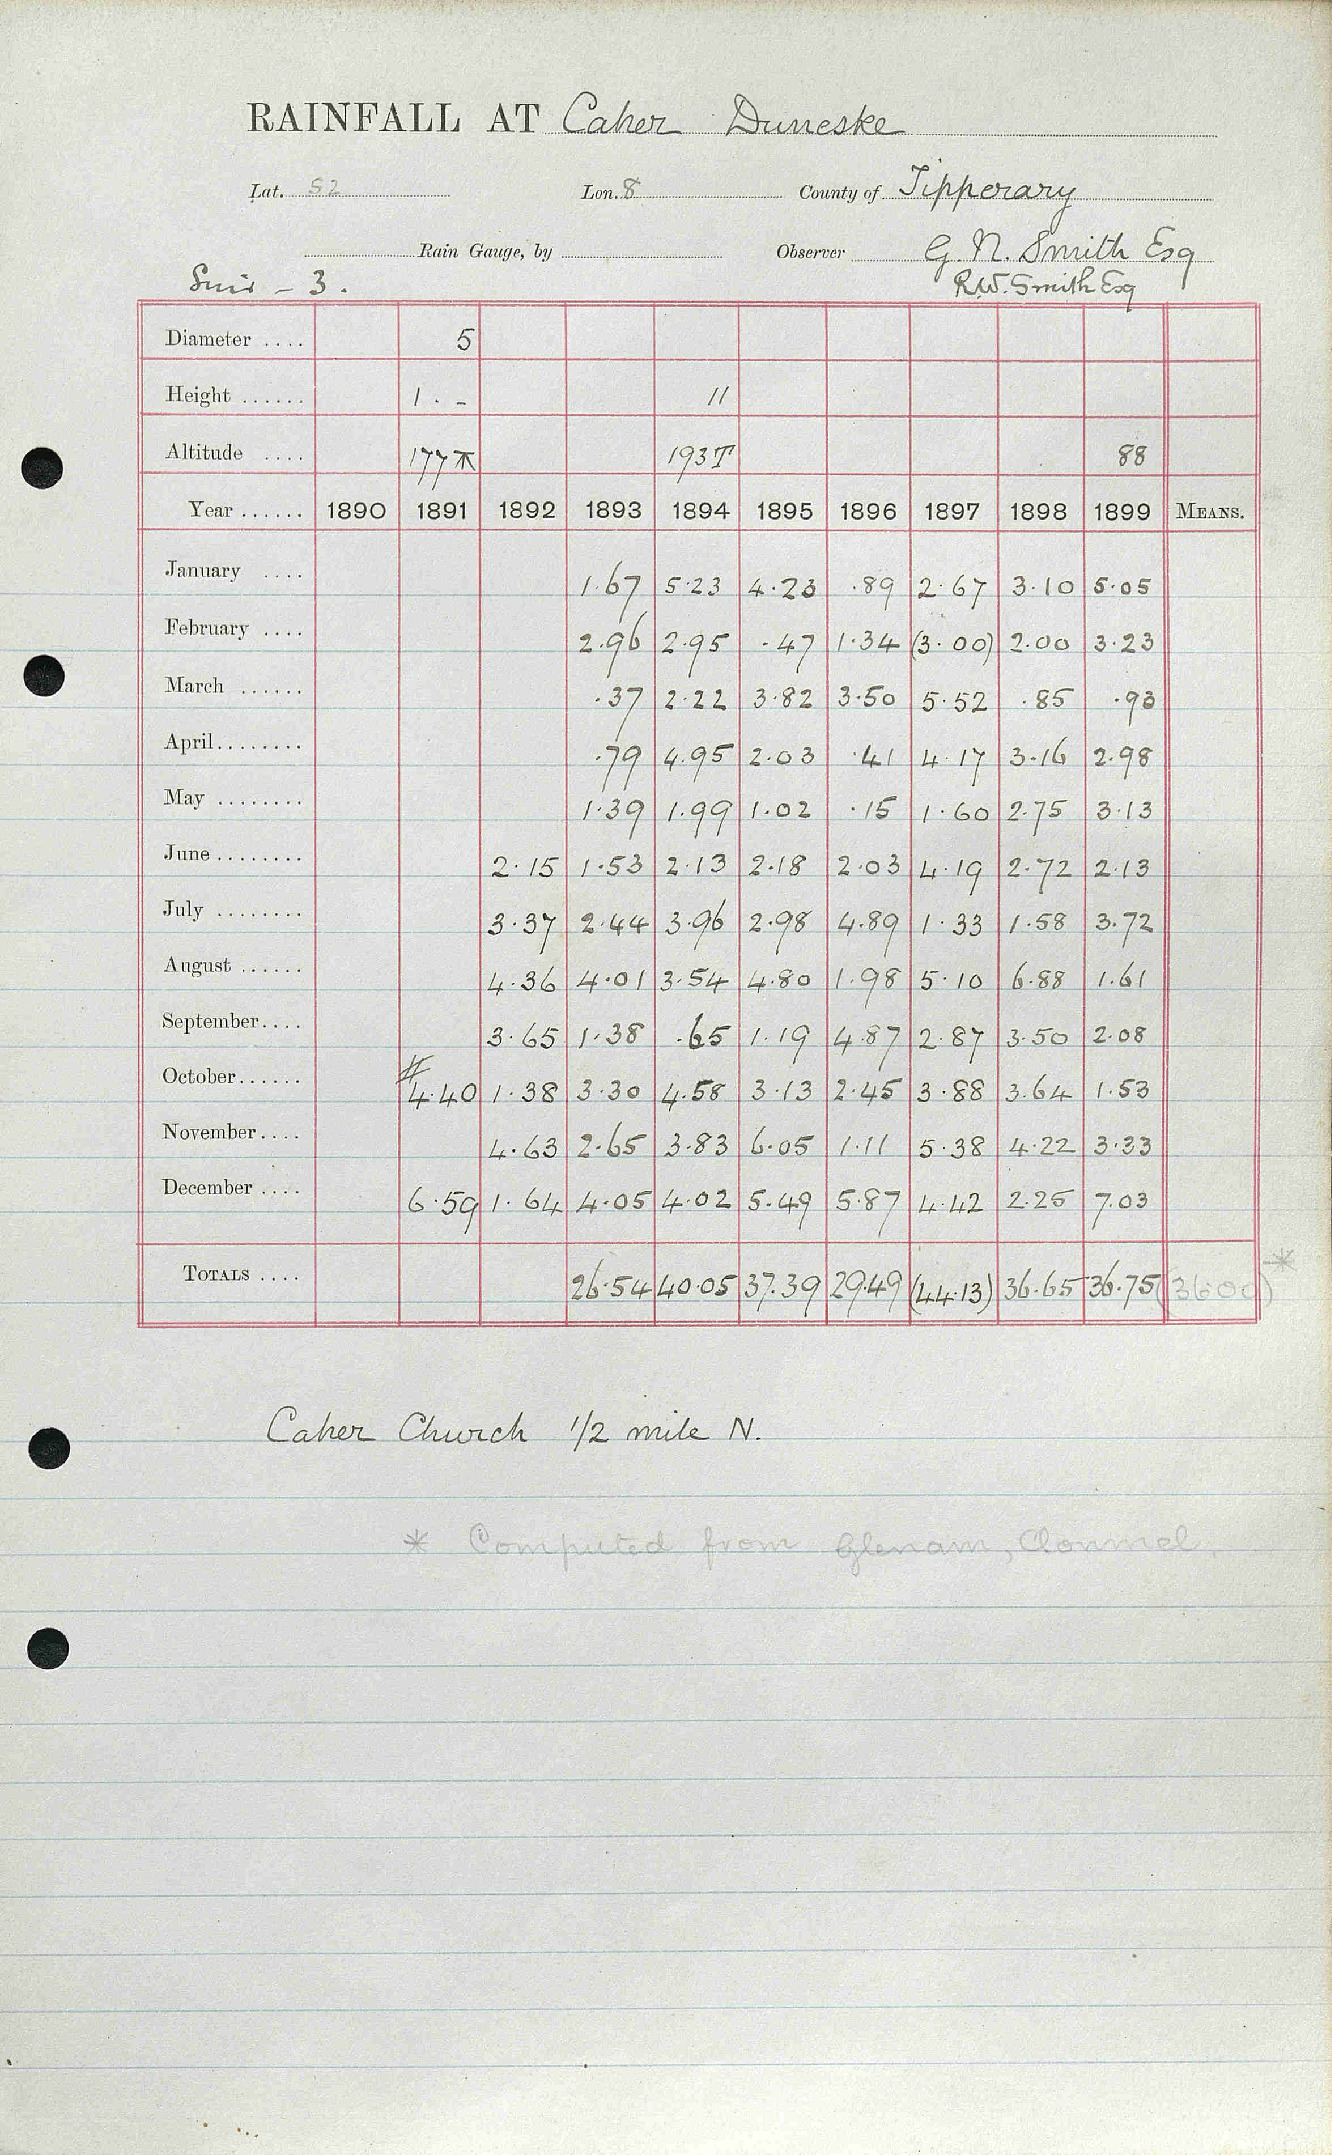 RAINFALL AT Caher Duneske
Lat. 52 Lon. 8 County of Tipperary
Rain Gauge, by Observer G. N. Smith Esq
Suir - 3. R.W. Smith Esq
Diameter .... 5
Height ...... 1 . - 11
Altitude .... 177 193T 88
Year ...... 1890 1891 1892 1893 1894 1895 1896 1897 1898 1899 MEANS.
January .... 1.67 5.23 4.23 .89 2.67 3.10 5.05
February .... 2.96 2.95 .47 1.34 (3.00) 2.00 3.23
March ...... .37 2.22 3.82 3.50 5.52 .85 .93
April........ .79 4.95 2.03 .41 4.17 3.16 2.98
May ........ 1.39 1.99 1.02 .15 1.60 2.75 3.13
June........ 2.15 1.53 2.13 2.18 2.03 4.19 2.72 2.13
July ........ 3.37 2.44 3.96 2.98 4.89 1.33 1.58 3.72
August ...... 4.36 4.01 3.54 4.80 1.98 5.10 6.88 1.61
September.... 3.65 1.38 .65 1.19 4.87 2.87 3.50 2.08
October...... # 4.40 1.38 3.30 4.58 3.13 2.45 3.88 3.64 1.53
November.... 4.63 2.65 3.83 6.05 1.11 5.38 4.22 3.33
December .... 6.59 1.64 4.05 4.02 5.49 5.87 4.42 2.25 7.03
TOTALS .... 26.54 40.05 37.39 29.49 (44.13) 36.65 36.75 (36.00) *
Caher Church 1/2 mile N.
* Computed from Glenam, Clonmel.